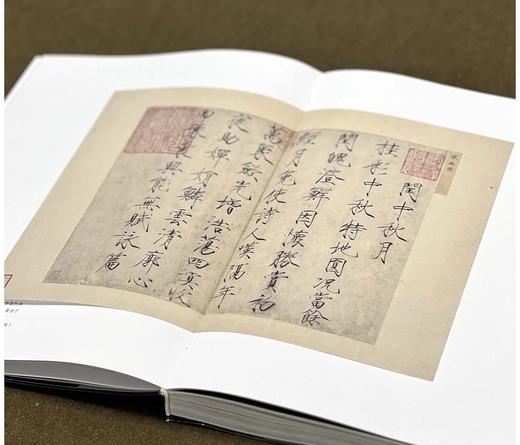 閏中秋月
桂彩中秋特地圓況當餘
閏魄澄鮮因懷勝賞初
經月免使詩人嘆隔年
萬象斂光增浩蕩四溟收
夜助嬋娟鱗雲清廓心
田豁乘興能無賦詠篇